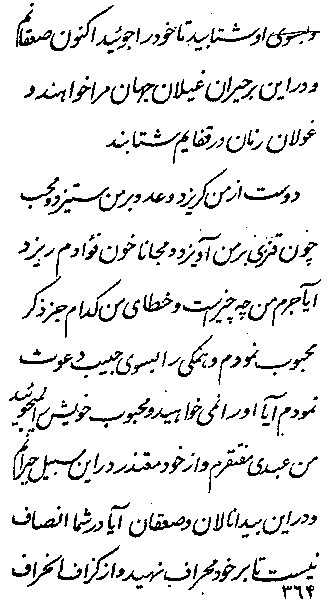 وبسوی او شتابید تا خود را جوئید اکنون صعقانم
و در این بر حیران غیلان جهان مرا خواهند و
غولان زنان در قفایم شتابند
دوست از من گریزد و عدو بر من ستیزد و محب
چون قزی بر من آویزد و مجانا خون فؤادم ریزد
آیا جرم من چه چیز است و خطای من کدام جز ذکر
محبوب نمودم و همگی را بسوی حبیب دعوت
نمودم آیا او را نمی خواهید و محبوب خویش را نمیجوئید
من عبدی مفتقرم و از خود مقتدر در این سبیل حیرانم
و در این بیدا نالان و صعقان آیا در شما انصاف
نیست تا بر خود محراف نهید و از گزاف انحراف
۳۶۴